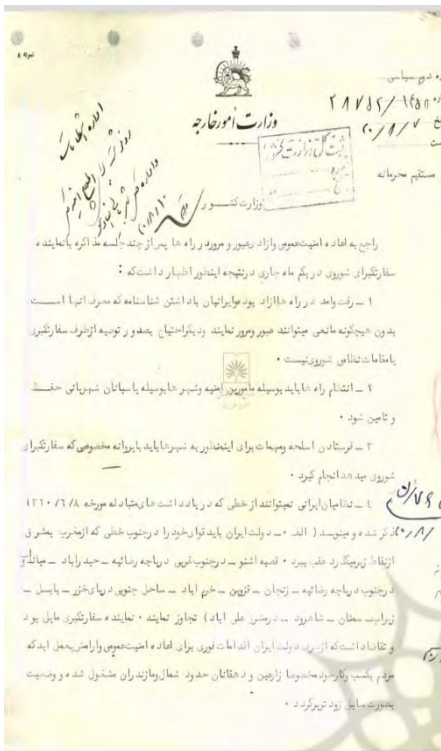 نمونه ۸
ه دوم سیاسی
وزارت اُمورخارجه
مستقیم محرمانه
ثبت کل وزارت کشور
وزارت کشـــور
راجع به اعاده امنیت عمومی و ازاد ی عبور و مرور در راه ها پس از چند جلسه مذاکره با نماینده
سفارتکبرای شوروی در یکم ماه جاری در نتیجه اینطور اظهار داشت که :
۱ ــ رفت وامد در راه ها ازاد بوده و ایرانیان با داشتن شناسنامه که معرف انها اســـت
بدون هیچگونه مانعی میتوانند عبور و مرور نمایند و دیگر احتیاج بصدور توصیه از طرف سفارتکبری
یا مقامات نظامی شوروی نیست ٠
۲ ــ انتظام راه ها باید بوسیله مامورین امنیه و شهر ها بوسیله پاسبانان شهربانی حفـــظ
و تامین شود ٠
۳ ــ فرستادن اسلحه و مهمات برای اینمنظور به شهرها باید با پروانه مخصوص که سفارتکبرای
شوروی مید هد انجام گیرد ٠
٤ ــ نظامیان ایرانی نمیتوانند از خطی که در یاد داشت های متبادله مورخه ۱۳۲۰/٦/۸
ذکر شده و مینویسد ( الف ٠ــ دولت ایران باید قوای خود را در جنوب خطی که از مغرب بمشرق
از نقاط زیر میگذرد عقب ببرد ٠ قصبه اشنو ــ در جنوب غربی دریاچه رضائیه ــ حیدراباد ــ میاندواب
در جنوب دریاچه رضائیه ــ زنجان ــ قزوین ــ خرم اباد ــ ساحل جنوبی دریای خزر ــ بابــل ــ
زیراب ــ سمنان ــ شاهرود ــ در مشرق علی اباد ) تجاوز نمایند ٠ نماینده سفارتکبری مایل بود
و تقاضا داشت که از طرف دولت ایران اقدامات فوری برای اعاده امنیت عمومی و ارامش بعمل اید که
مردم بکسب و کار خود مخصوصا زارعین و دهقانان حدود شمال و مازندران مشغول شده و وضعیت
بصورت سابق زود تر برگردد ٠